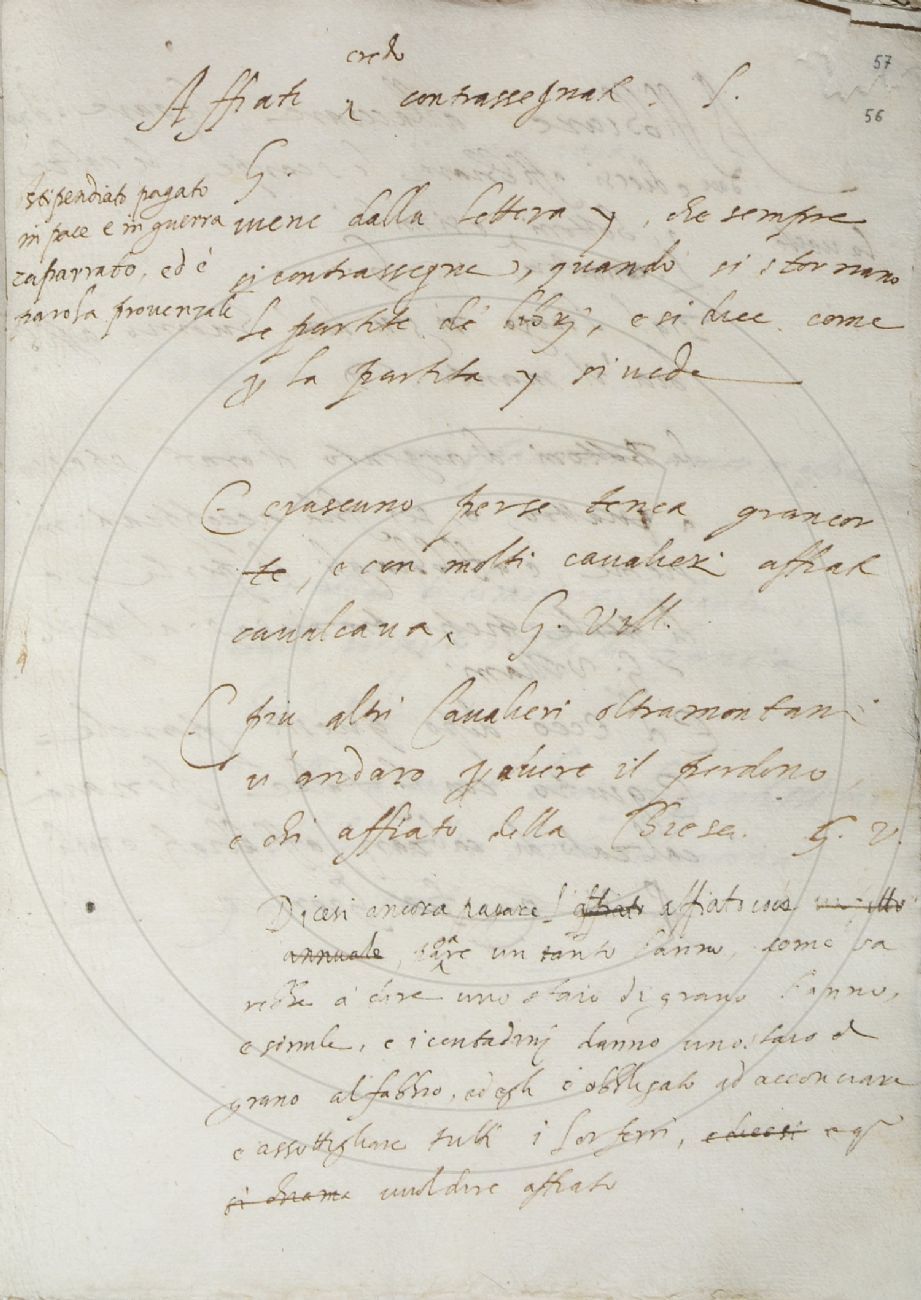 57
56
credo
Affiati contrassegnati. S.
G.
stipendiato pagato
in pace e in guerra
caparrato, ed è
parola provenzale
uiene dalla lettera y, che sempre
si contrassegne, quando si stornano
le partite de libri, e si dice come
p la partita y si uede
Ciascuno per se tenea gran cor
te, e con molti caualieri affiati
caualcaua. G. Vill.
E piu altri Caualieri oltramontani
u'andaro p auere il perdono,
e chi affiato della Chiesa. G. V.
Dicesi ancora pagare l'affiato affiato cioè un fitto
annuale, pagare un tanto l'anno, come sa
rebbe a dire uno staio di grano l'anno,
e simile, e i contadini danno uno staio di
grano al fabbro, ed egli è obbligato ad acconciare
e assottigliare tutti i lor ferri, e dicesi e qsto
si chiama vuol dire affiato